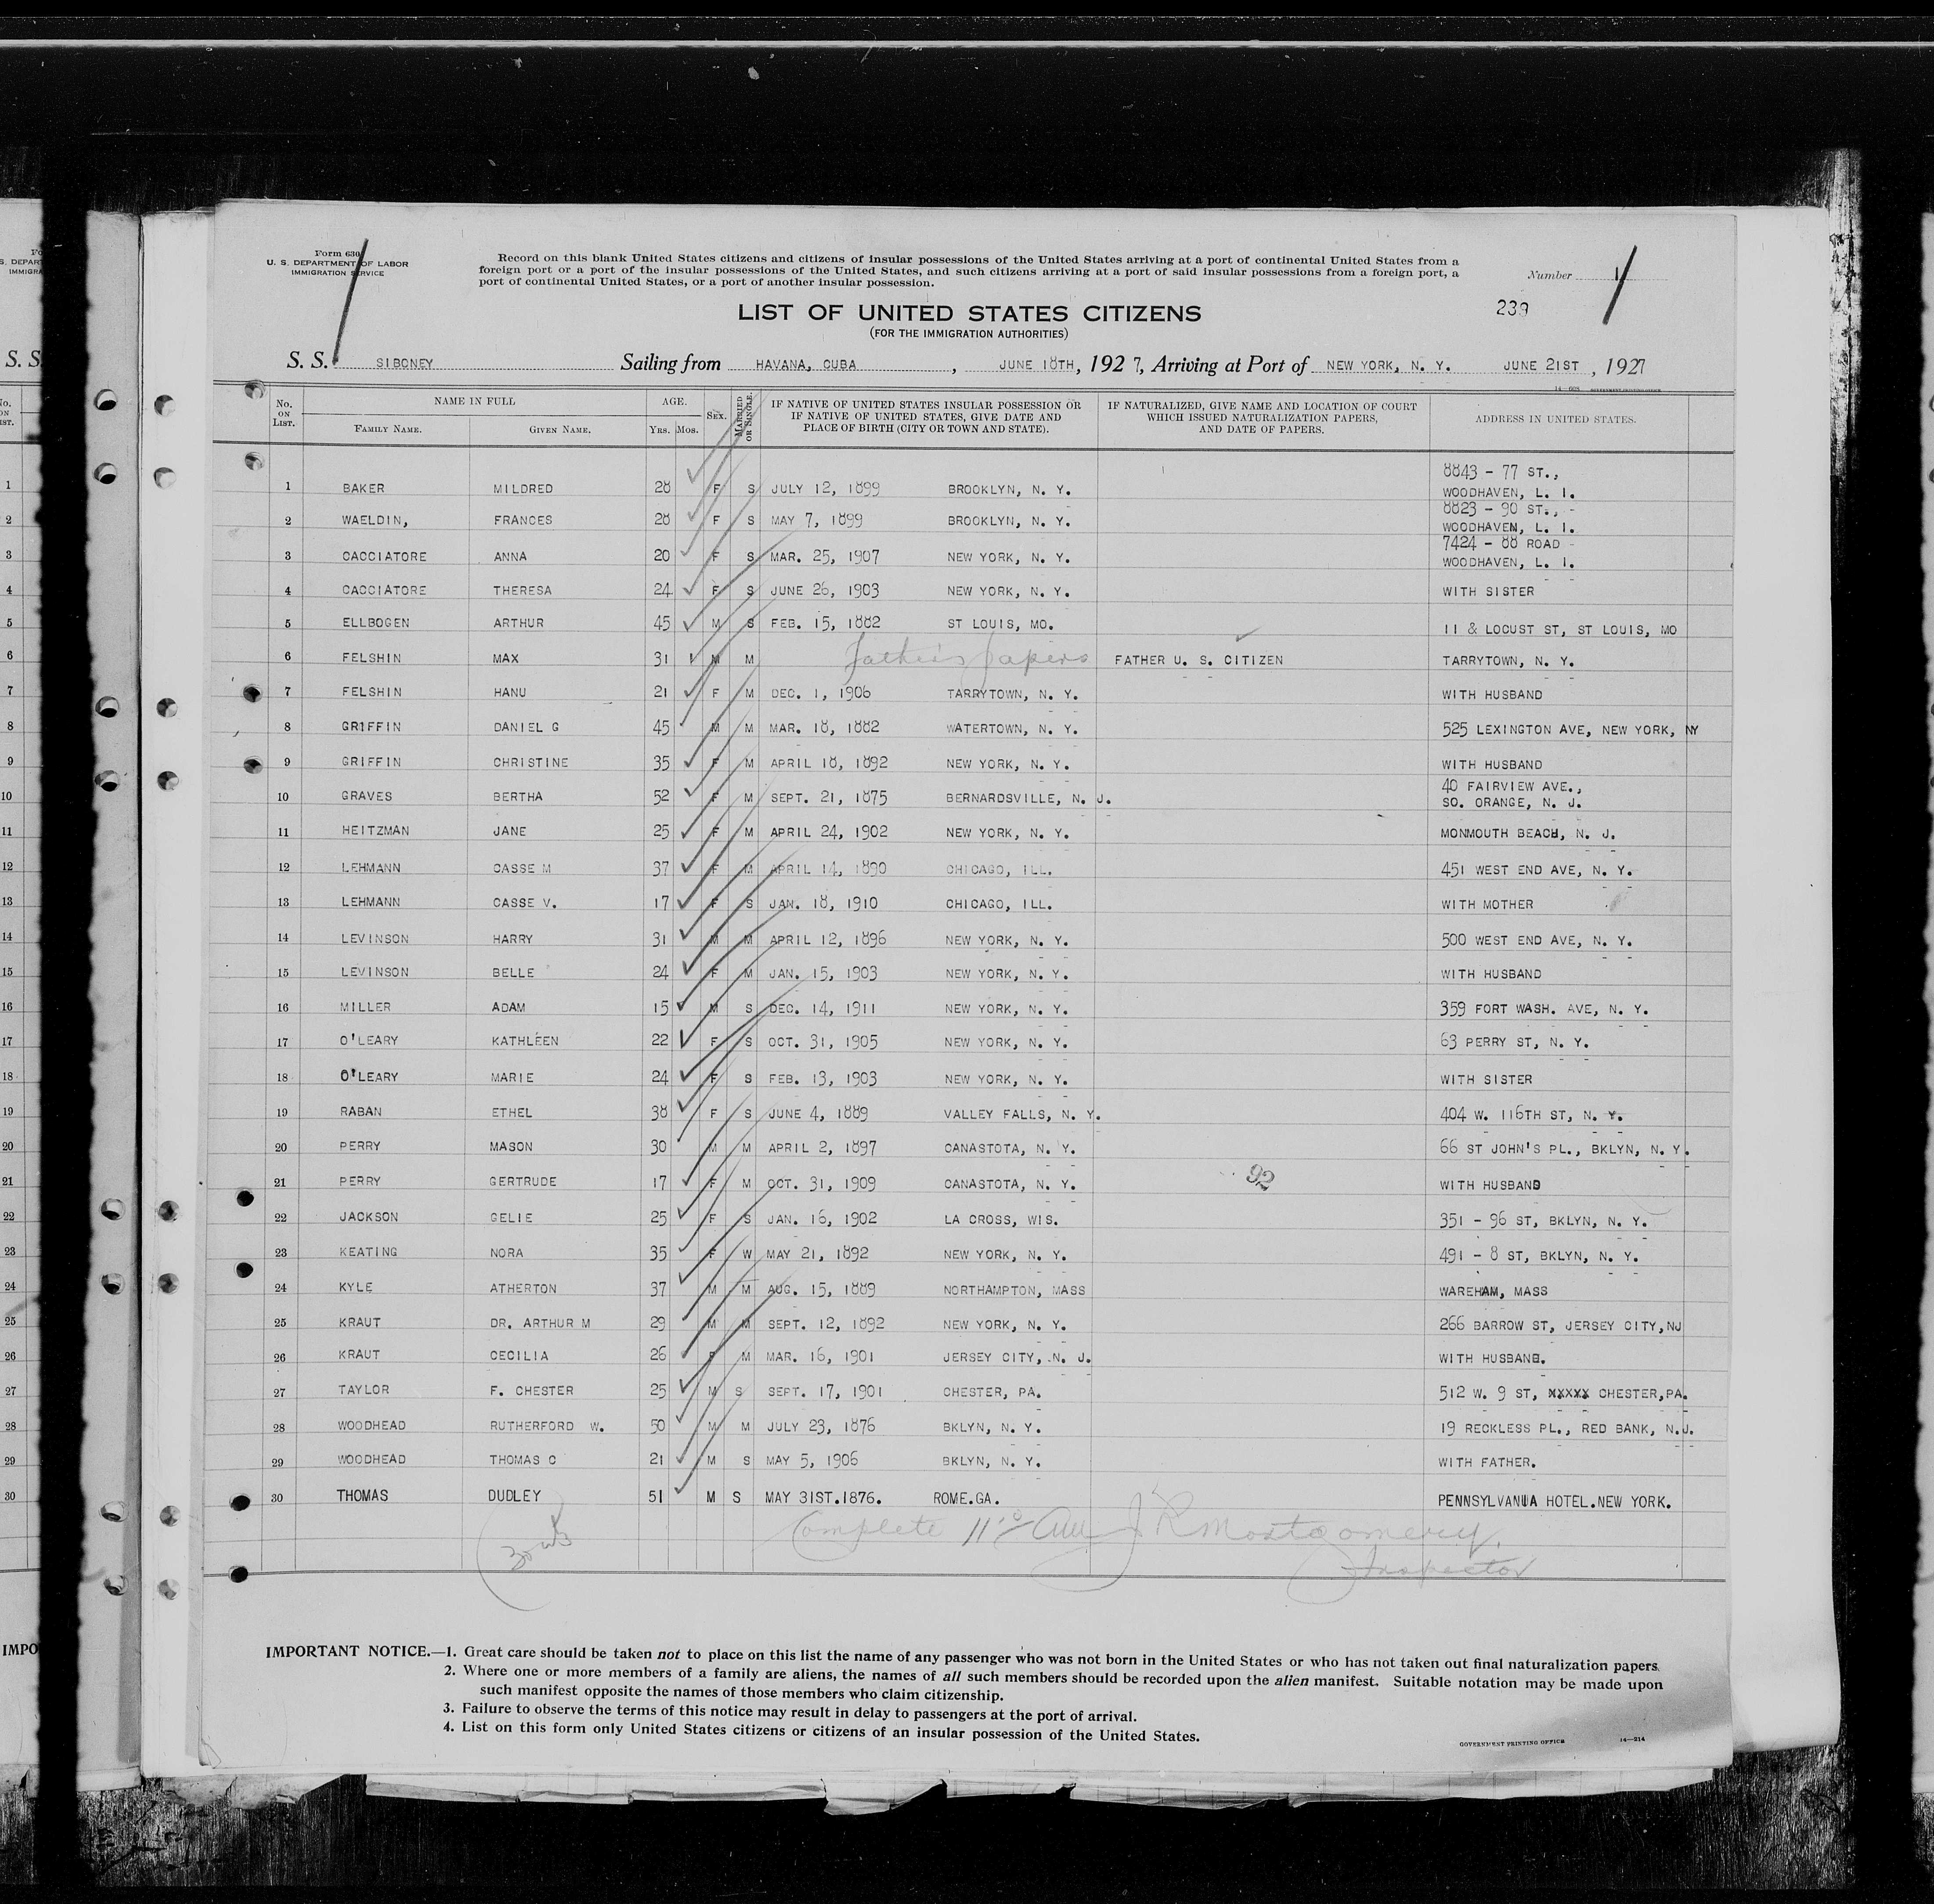 Form 630
U. S. DEPARTMENT OF LABOR
IMMIGRATION SERVICE
Record on this blank United States citizens and citizens of insular possessions of the United States arriving at a port of continental United States from a
foreign port or a port of the insular possessions of the United States, and such citizens arriving at a port of said insular possessions from a foreign port, a
port of continental United States, or a port of another insular possession.
Number 1
LIST OF UNITED STATES CITIZENS
239
(FOR THE IMMIGRATION AUTHORITIES)
S. S. SIBONEY Sailing from HAVANA, CUBA, JUNE 18TH, 1927, Arriving at Port of NEW YORK, N. Y. JUNE 21ST, 1927
No. ON LIST. NAME IN FULL AGE. SEX. MARRIED OR SINGLE. IF NATIVE OF UNITED STATES INSULAR POSSESSION OR IF NATIVE OF UNITED STATES, GIVE DATE AND PLACE OF BIRTH (CITY OR TOWN AND STATE). IF NATURALIZED, GIVE NAME AND LOCATION OF COURT WHICH ISSUED NATURALIZATION PAPERS, AND DATE OF PAPERS. ADDRESS IN UNITED STATES.
FAMILY NAME. GIVEN NAME. YRS. MOS.
1 BAKER MILDRED 28 F S JULY 12, 1899 BROOKLYN, N. Y. 8843 - 77 ST., WOODHAVEN, L. I.
2 WAELDIN, FRANCES 28 F S MAY 7, 1899 BROOKLYN, N. Y. 8823 - 90 ST., WOODHAVEN, L. I.
3 CACCIATORE ANNA 20 F S MAR. 25, 1907 NEW YORK, N. Y. 7424 - 88 ROAD WOODHAVEN, L. I.
4 CACCIATORE THERESA 24 F S JUNE 26, 1903 NEW YORK, N. Y. WITH SISTER
5 ELLBOGEN ARTHUR 45 M S FEB. 15, 1882 ST LOUIS, MO. 11 & LOCUST ST, ST LOUIS, MO
6 FELSHIN MAX 31 M M Father's papers FATHER U. S. CITIZEN TARRYTOWN, N. Y.
7 FELSHIN HANU 21 F M DEC. 1, 1906 TARRYTOWN, N. Y. WITH HUSBAND
8 GRIFFIN DANIEL G 45 M M MAR. 18, 1882 WATERTOWN, N. Y. 525 LEXINGTON AVE, NEW YORK, NY
9 GRIFFIN CHRISTINE 35 F M APRIL 18, 1892 NEW YORK, N. Y. WITH HUSBAND
10 GRAVES BERTHA 52 F M SEPT. 21, 1875 BERNARDSVILLE, N. J. 40 FAIRVIEW AVE., SO. ORANGE, N. J.
11 HEITZMAN JANE 25 F M APRIL 24, 1902 NEW YORK, N. Y. MONMOUTH BEACH, N. J.
12 LEHMANN CASSE M 37 F M APRIL 14, 1890 CHICAGO, ILL. 451 WEST END AVE, N. Y.
13 LEHMANN CASSE V. 17 F S JAN. 18, 1910 CHICAGO, ILL. WITH MOTHER
14 LEVINSON HARRY 31 M M APRIL 12, 1896 NEW YORK, N. Y. 500 WEST END AVE, N. Y.
15 LEVINSON BELLE 24 F M JAN. 15, 1903 NEW YORK, N. Y. WITH HUSBAND
16 MILLER ADAM 15 M S DEC. 14, 1911 NEW YORK, N. Y. 359 FORT WASH. AVE, N. Y.
17 O'LEARY KATHLEEN 22 F S OCT. 31, 1905 NEW YORK, N. Y. 63 PERRY ST, N. Y.
18 O'LEARY MARIE 24 F S FEB. 13, 1903 NEW YORK, N. Y. WITH SISTER
19 RABAN ETHEL 38 F S JUNE 4, 1889 VALLEY FALLS, N. Y. 404 W. 116TH ST, N. Y.
20 PERRY MASON 30 M M APRIL 2, 1897 CANASTOTA, N. Y. 66 ST JOHN'S PL., BKLYN, N. Y.
21 PERRY GERTRUDE 17 F M OCT. 31, 1909 CANASTOTA, N. Y. 92 WITH HUSBAND
22 JACKSON GELIE 25 F S JAN. 16, 1902 LA CROSS, WIS. 351 - 96 ST, BKLYN, N. Y.
23 KEATING NORA 35 F W MAY 21, 1892 NEW YORK, N. Y. 491 - 8 ST, BKLYN, N. Y.
24 KYLE ATHERTON 37 M M AUG. 15, 1889 NORTHAMPTON, MASS WAREHAM, MASS
25 KRAUT DR. ARTHUR M 29 M M SEPT. 12, 1892 NEW YORK, N. Y. 266 BARROW ST, JERSEY CITY, NJ
26 KRAUT CECILIA 26 F M MAR. 16, 1901 JERSEY CITY, N. J. WITH HUSBAND.
27 TAYLOR F. CHESTER 25 M S SEPT. 17, 1901 CHESTER, PA. 512 W. 9 ST, XXXXX CHESTER, PA.
28 WOODHEAD RUTHERFORD W. 50 M M JULY 23, 1876 BKLYN, N. Y. 19 RECKLESS PL., RED BANK, N.J.
29 WOODHEAD THOMAS C 21 M S MAY 5, 1906 BKLYN, N. Y. WITH FATHER.
30 THOMAS DUDLEY 51 M S MAY 31ST.1876. ROME.GA. PENNSYLVANIA HOTEL.NEW YORK.
Complete J R Montgomery.
Inspector
IMPORTANT NOTICE.—1. Great care should be taken not to place on this list the name of any passenger who was not born in the United States or who has not taken out final naturalization papers.
2. Where one or more members of a family are aliens, the names of all such members should be recorded upon the alien manifest. Suitable notation may be made upon
such manifest opposite the names of those members who claim citizenship.
3. Failure to observe the terms of this notice may result in delay to passengers at the port of arrival.
4. List on this form only United States citizens or citizens of an insular possession of the United States.
GOVERNMENT PRINTING OFFICE 14—214